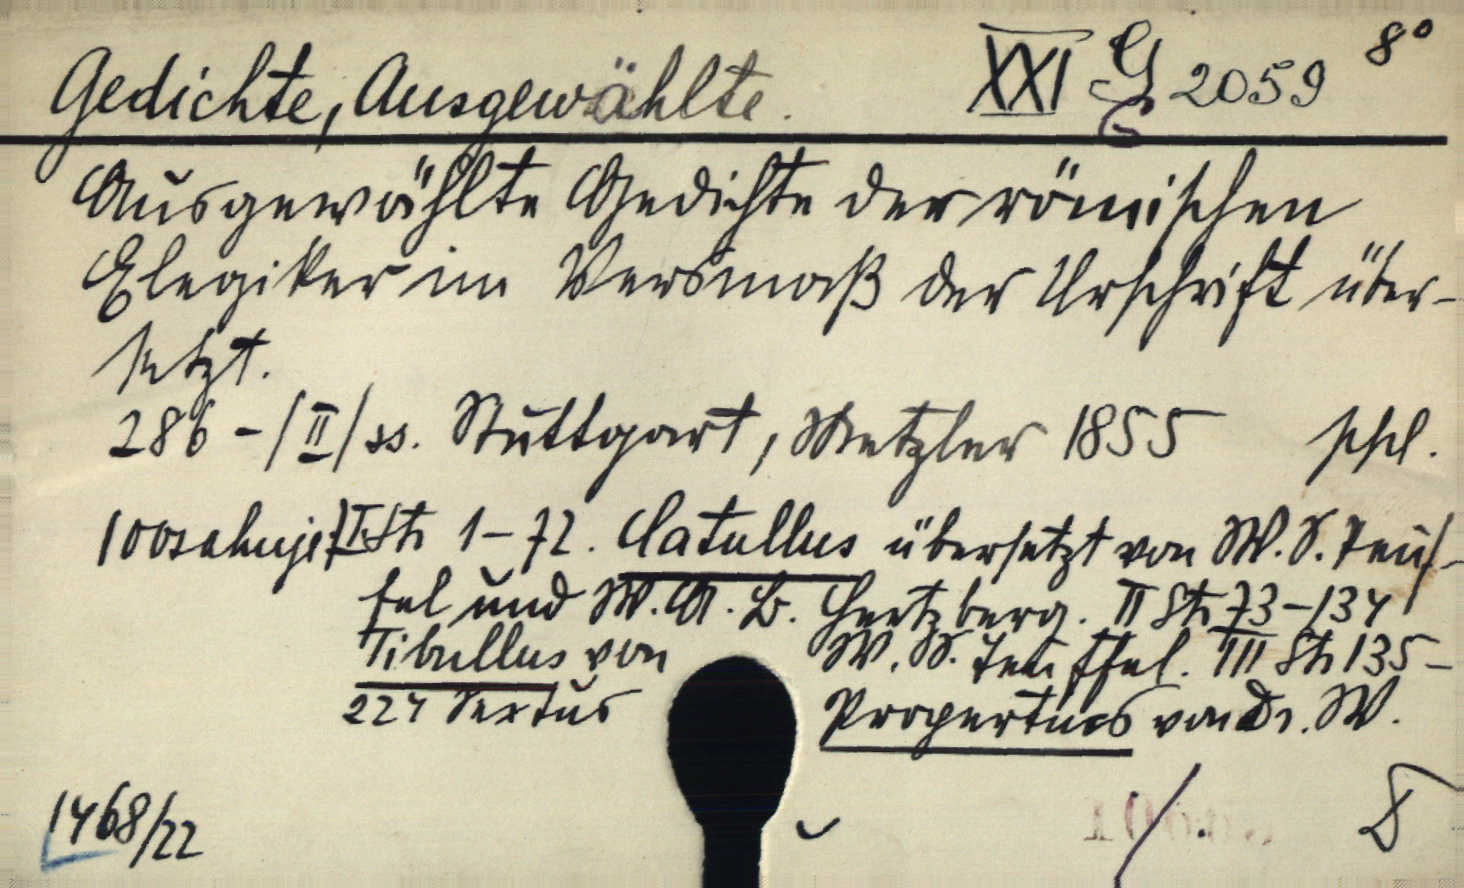 Gedichte, Ausgewählte. XXI G 2059 8°
Ausgewählte Gedichte der römischen
Elegiker im Versmaß der Urschrift über-
setzt.
286 - /II/ ss. Stuttgart, Metzler 1855
I St: 1-72. Catullus übersetzt von W. S. Teuf-
fel und W. A. B. Hertzberg. II St: 73-134
Tibullus von W. S. Teuffel. III St: 135-
224 Sextus Propertius von Dr. W.
1468/22